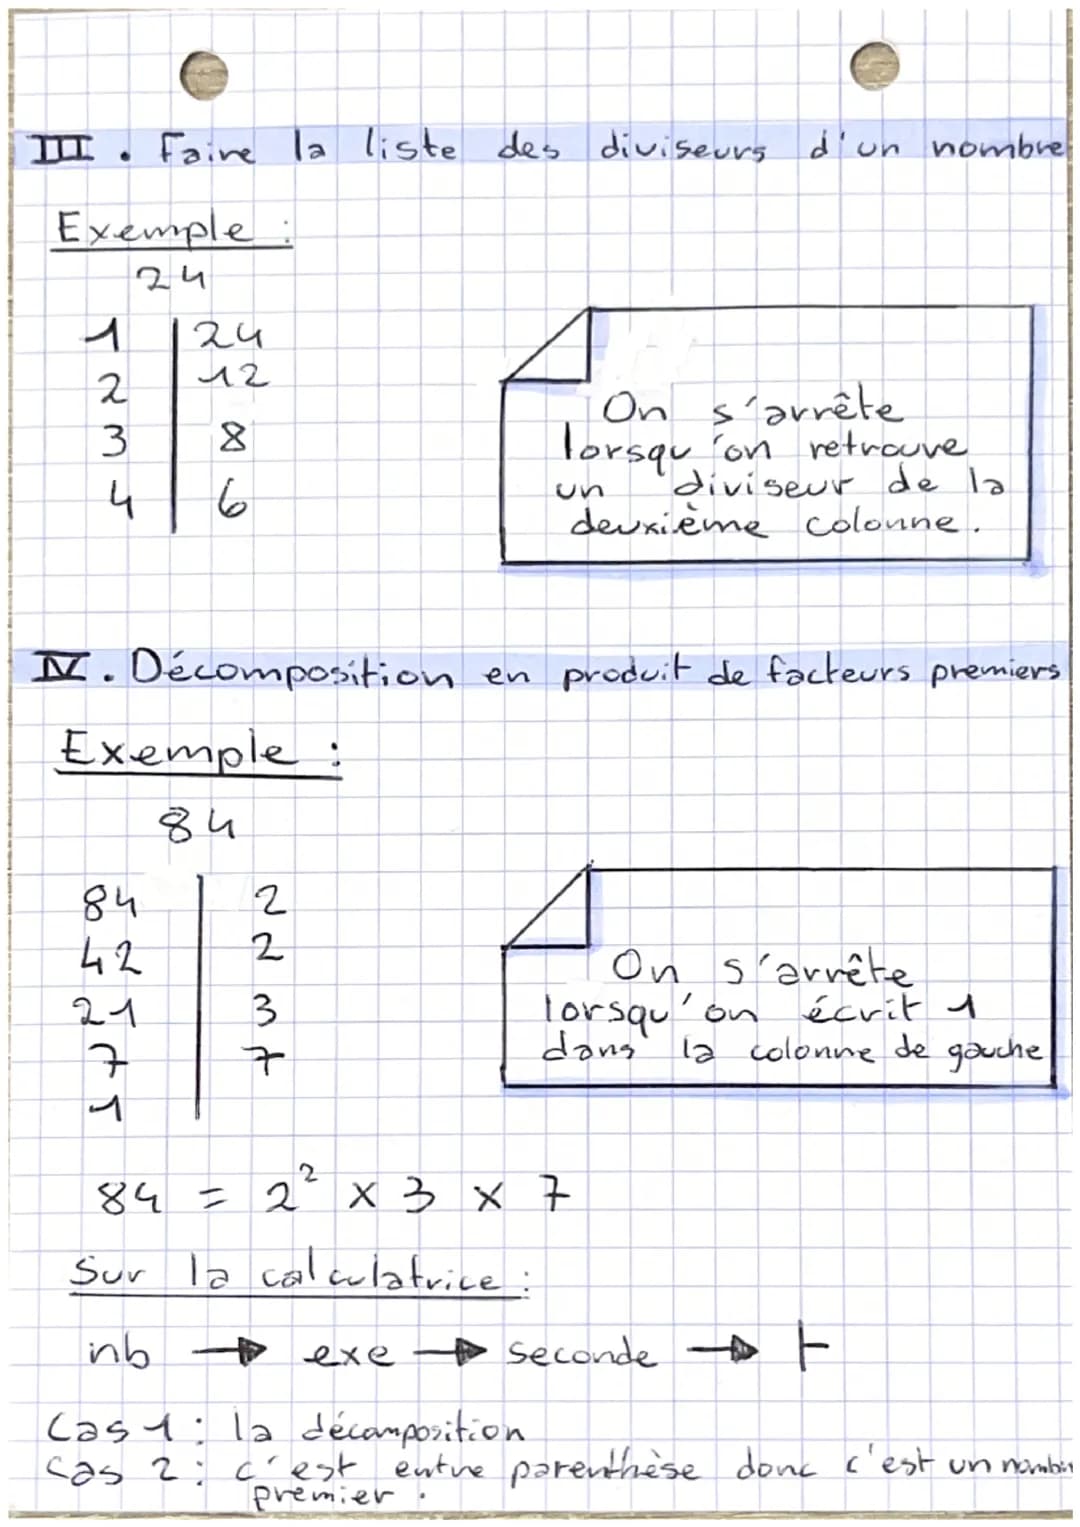 III. Faire la liste des diviseurs d'un nombre
Exemple :
24
1 | 24
2 | 12
3 | 8
4 | 6
On s'arrête
lorsqu'on retrouve
un diviseur de la
deuxième colonne.
IV. Décomposition en produit de facteurs premiers
Exemple :
84
84 | 2
42 | 2
21 | 3
7 | 7
1 |
On s'arrête
lorsqu'on écrit 1
dans la colonne de gauche
84 = 2² × 3 × 7
Sur la calculatrice :
nb → exe → seconde → ⊢
Cas 1 : la décomposition
Cas 2 : c'est entre parenthèse donc c'est un nombre
premier.